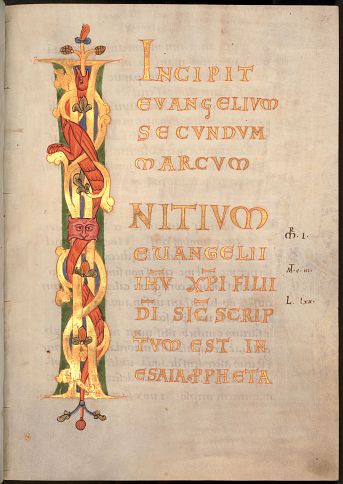 INCIPIT
EVANGELIVM
SECVNDVM
MARCVM
INITIVM
EVANGELII
IHV̄ XP̄I FILII
DĪ SIC̄ SCRIP
TVM EST IN
ESAIA PPHETA